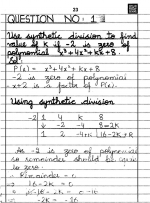 23
QUESTION NO: 1
Use synthetic division to find
value of k if -2 is zero of
polynomial x³+4x²+kx+8.
Sol:
P(x) = x³+4x²+kx+8
-2 is zero of polynomial
x+2 is a factor of P(x).
Using synthetic division
-2 1 4 k 8
↓ -2 -4 8-2k
1 2 -4+k 16-2k = R
As -2 is zero of polynomial
so remainder should be equal
to zero:
Remainder = 0
16-2k = 0
-2k = -16